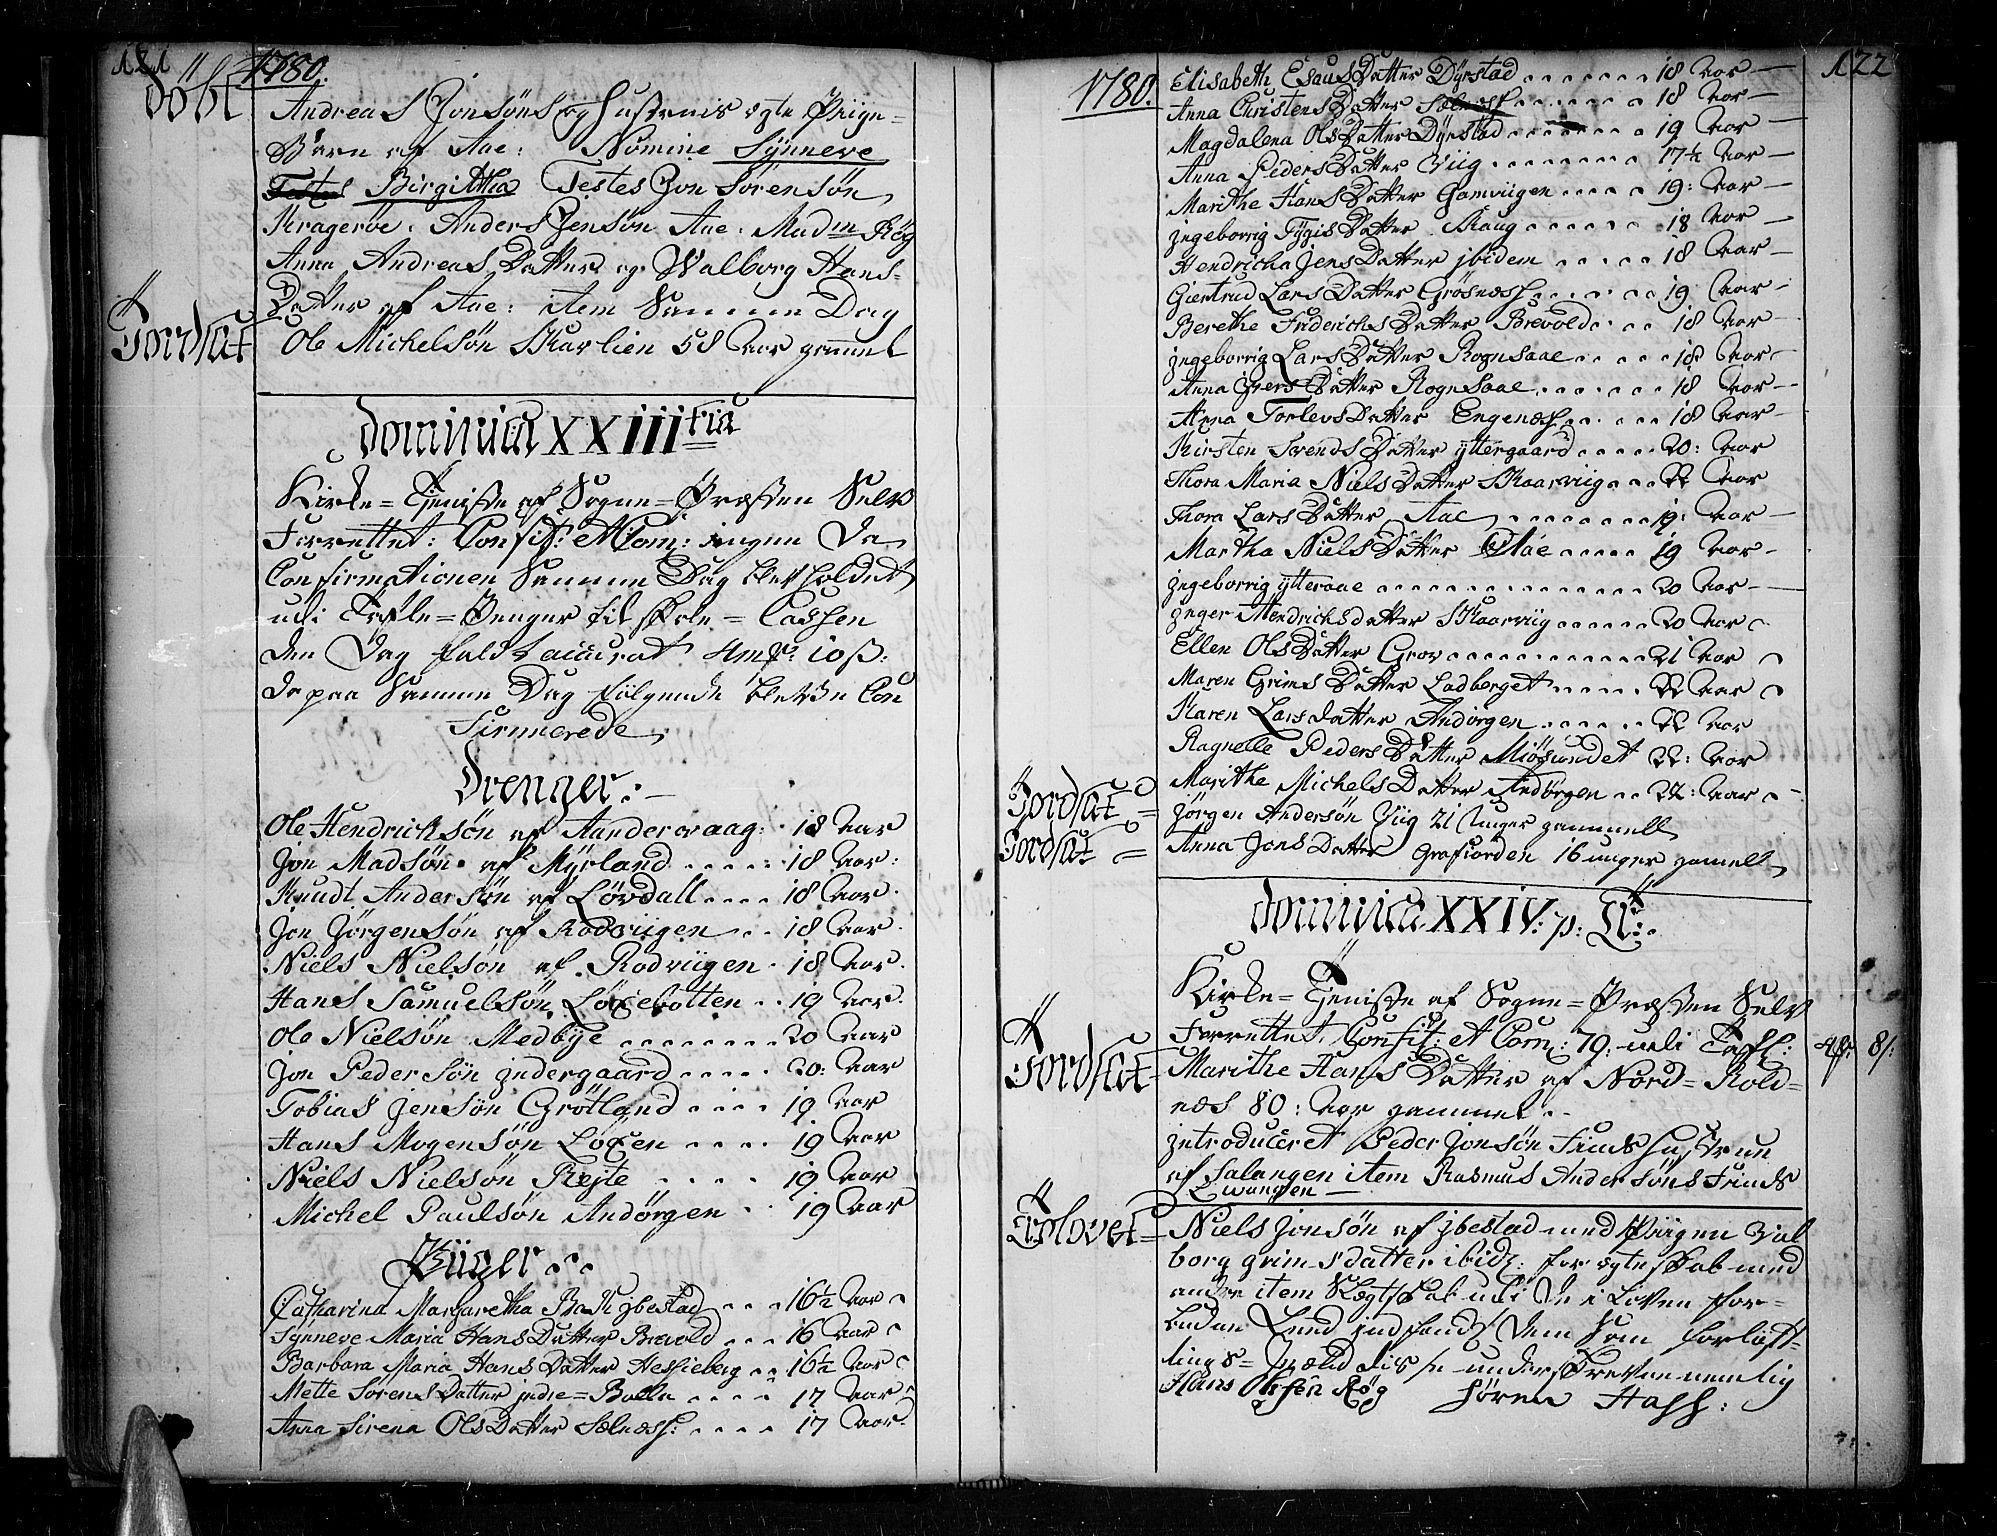 121
1780.
döbt
Andreas Jonsöns og Hustrues ægte Piige=
Barn af Aae: Nomine Synneve
Birgitha Testes Jon Sörensön
Kragerøe. Anders Jensön Aae. Mad.m Røg
Anna AndreasDatter og Walborg Hans=
Datter af Aae: item Samme Dag
Jordsat
Ole Michelsön Skavlien 58 Aar gammel
Dominica XXIII tia
Kirke=Tieniste af Sogne=Præsten Selv
Forrettet: Confit: et Com: ingen da
Confirmationen Samme Dag blev holdet
udi Tafle=Penger til Skole=Cassen
den Dag faldt accurat 4 mk: 10 ß:
da paa Samme Dag følgende bleve Con
firmerede
Drenger:
Ole Hendricksön af Aandervaag: 18 Aar
Jon Madsön af Myrland ..... 18 Aar:
Knudt Andersön af Lövdall .... 18 Aar.
Jon Jörgensön af Rodviigen .. 18 Aar.
Niels Nielsön af Rodviigen . 18 Aar.
Hans Samuelsön Löxebotten .. 19 Aar.
Ole Nielsön Medbye ........ 20 Aar
Jon Pedersön indergaard ..... 20: Aar
Tobias Jensön Grötland .... 19 Aar
Hans Mogensön Löxen .... 19 Aar
Niels Nielsön Rejte .... 19 Aar
Michel Paulsön Andörgen .. 19 Aar
Piiger
Catharina Margaretha Bask ibestad ... 16½ Aar
Synneve Maria HansDatter Brevold ... 16 Aar
Barbara Maria HansDatter Hessieberg .. 16½ Aar
Mette SörensDatter indre=Bolla .... 17 Aar
Anna Sirena OlsDatter Sælnæss: .... 17 Aar
122
1780.
Elisabeth EsausDatter Dyrstad ....... 18 Aar
Anna ChristensDatter Sælnæss ....... 18 Aar
Magdalena OlsDatter Dyrstad ....... 19 Aar
Anna PedersDatter Viig ........ 17½ Aar
Marithe HansDatter Gamviigen .... 19: Aar
ingeborrig TygisDatter Skaug ...... 18 Aar
Hendricha JensDatter ibidem ..... 18 Aar
Giertrud LarsDatter Grösnæss ...... 19 Aar
Berethe FriderichsDatter Brevold .... 18 Aar
ingeborrig LarsDatter Rognsaae ..... 18 Aar
Anna IversDatter Rognsaae ...... 18 Aar
Anna TorlevsDatter Engenæs ..... 18 Aar
Kirsten SvendsDatter yttergaard ..... 20: Aar
Thora Maria NielsDatter Skaarviig ... 22 Aar
Thora LarsDatter Aae ........ 19: Aar
Martha NielsDatter Aae ..... 19 Aar
ingeborrig ytteraae ............... 20 Aar
inger Hendrichsdatter Skaarviig ...... 20 Aar
Ellen OlsDatter Grov ............ 21 Aar
Maren GrimsDatter Ladberget ..... 22 Aar
Karen Larsdatter Andörgen ...... 22 Aar
Ragnelle PedersDatter Miösundet 22: Aar
Marithe MichelsDatter Andörgen .. 22: Aar
Jordsat=
Jörgen Andersön Viig 21 Uuger gammell
Jordsat=
Anna JonsDatter Grafiorden 16 uuger gamell
Dominica XXIV: p: Tr:
Kirke=Tieniste af Sogne=Præsten Selv
Forrettet. Confit: et Com: 79: udi Tafl: 8 ß:
Jordsat=
Marithe HansDatter af Nord=Rold=
næs 80: Aar gammel ..
introduceret Peder Jonsön Finds Hustrue
af Salangen item Rasmus Andersöns Finds
Qwangen
Trolovet=
Niels Jonsön af ibestad med Piigen Val
borg grimsdatter ibid: for ægteskab med
andre item Slægtskab udi de i Loven for=
budne Leed indfandt dem Som forloft=
nings=Mænd disse underskrevne nemlig
Hans Olssen Røg Sören Hass: